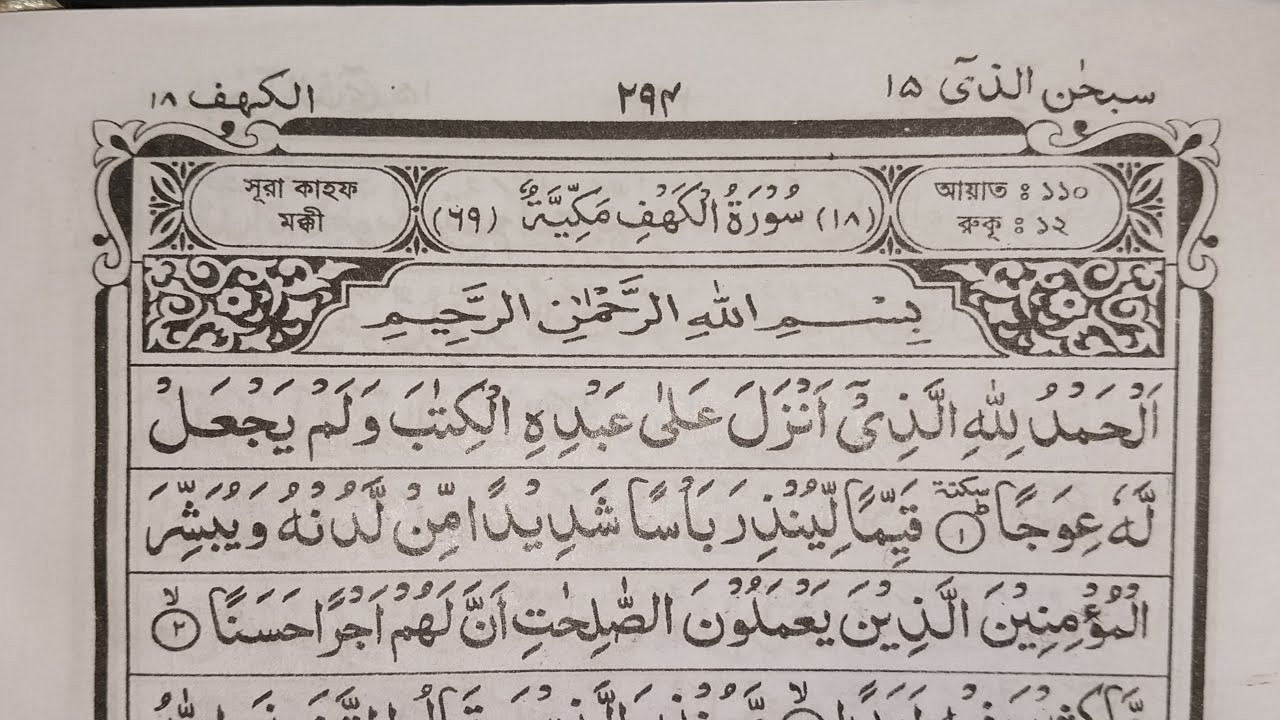 سبحٰن الذیٓ ١۵
٢٩٤
الکہف ١٨
আয়াত : ১১০
রুকূ : ১২
(١٨) سُوْرَةُ الْكَهْفِ مَكِّيَّةٌ (٦٩)
সূরা কাহফ
মক্কী
بِسْمِ اللهِ الرَّحْمٰنِ الرَّحِيْمِ
اَلْحَمْدُ لِلّٰهِ الَّذِىْٓ اَنْزَلَ عَلٰى عَبْدِهِ الْكِتٰبَ وَلَمْ يَجْعَلْ
لَّهٗ عِوَجًا ۜ ؕ ١ قَيِّمًا لِّيُنْذِرَ بَاْسًا شَدِيْدًا مِّنْ لَّدُنْهُ وَيُبَشِّرَ
الْمُؤْمِنِيْنَ الَّذِيْنَ يَعْمَلُوْنَ الصّٰلِحٰتِ اَنَّ لَهُمْ اَجْرًا حَسَنًا ۙ ٢